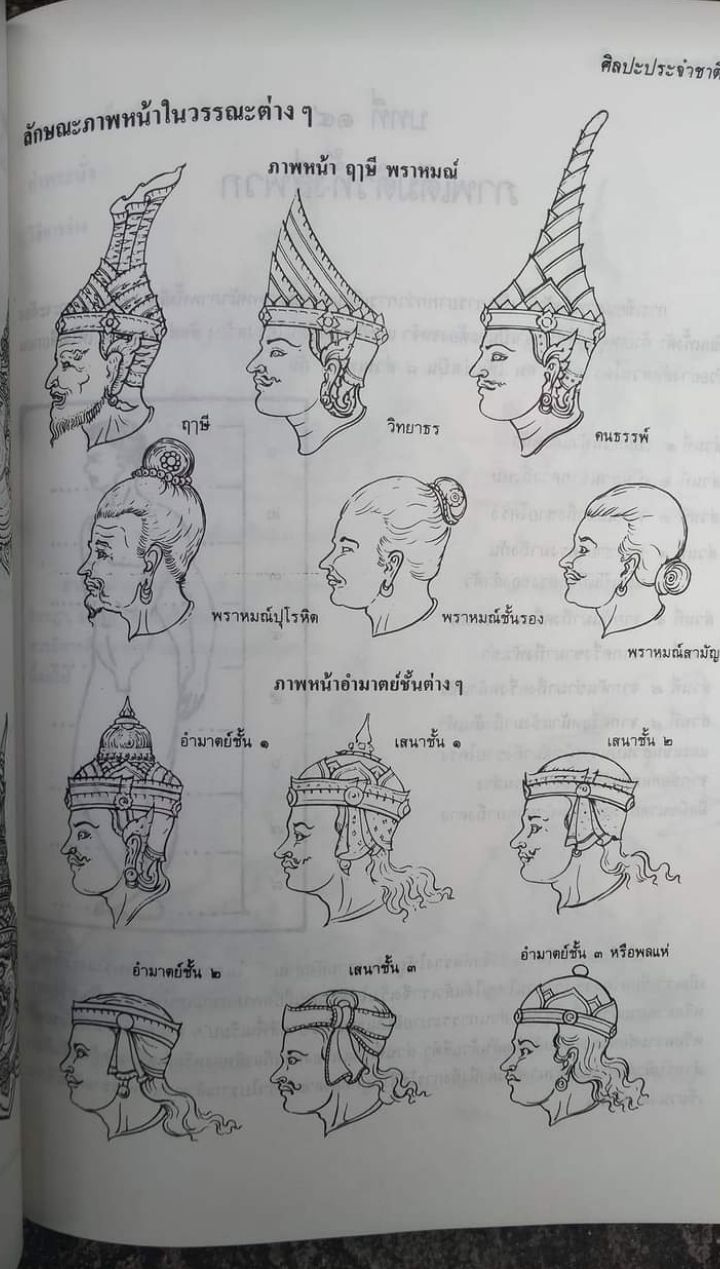 ศิลปะประจำชาติ
ลักษณะภาพหน้าในวรรณะต่าง ๆ
ภาพหน้า ฤๅษี พราหมณ์
ฤๅษี
วิทยาธร
คนธรรพ์
พราหมณ์ปุโรหิต
พราหมณ์ชั้นรอง
พราหมณ์สามัญ
ภาพหน้าอำมาตย์ชั้นต่าง ๆ
อำมาตย์ชั้น ๑
เสนาชั้น ๑
เสนาชั้น ๒
อำมาตย์ชั้น ๒
เสนาชั้น ๓
อำมาตย์ชั้น ๓ หรือพลแห่